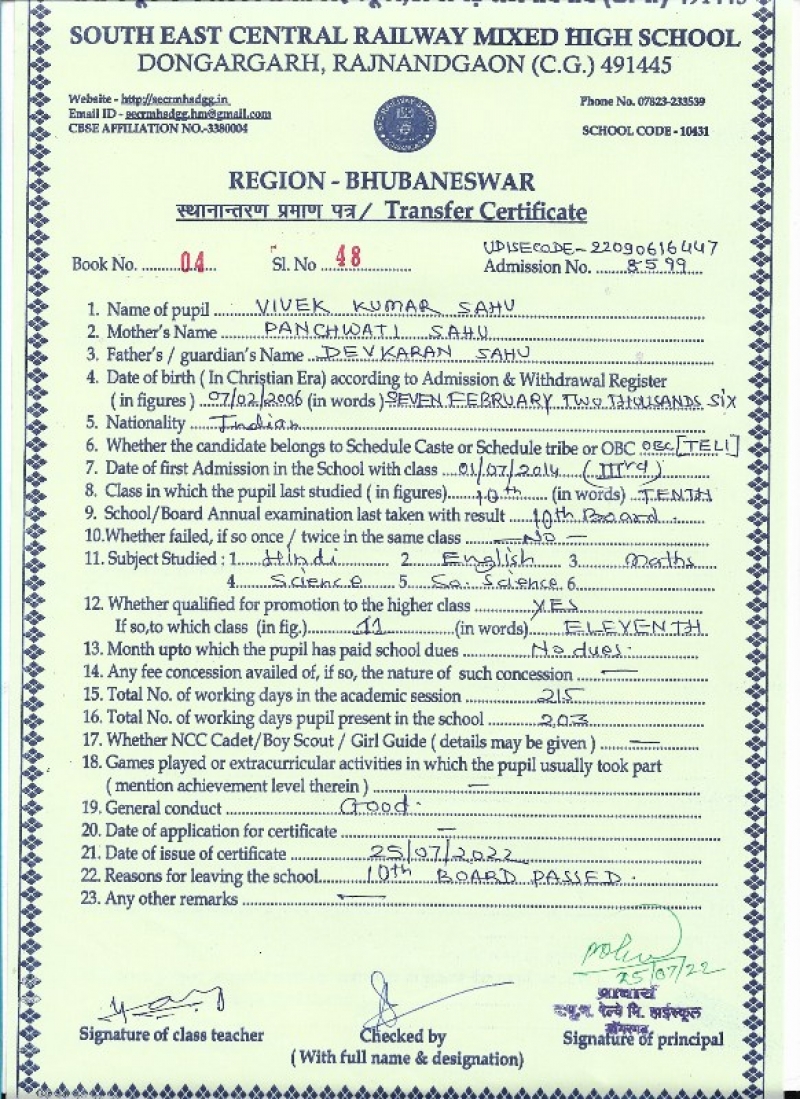 SOUTH EAST CENTRAL RAILWAY MIXED HIGH SCHOOL
DONGARGARH, RAJNANDGAON (C.G.) 491445
Website - http://secrmhsdgg.in
Phone No. 07823-233539
Email ID - secrmhsdgg.hm@gmail.com
CBSE AFFILIATION NO.-3380004
SCHOOL CODE - 10431
REGION - BHUBANESWAR
स्थानान्तरण प्रमाण पत्र / Transfer Certificate
UDISECODE-22090616447
Book No. 04 Sl. No 48 Admission No. 8599
1. Name of pupil VIVEK KUMAR SAHU
2. Mother's Name PANCHWATI SAHU
3. Father's / guardian's Name DEVKARAN SAHU
4. Date of birth ( In Christian Era) according to Admission & Withdrawal Register
( in figures ) 07/02/2006 (in words ) SEVEN FEBRUARY TWO THOUSANDS SIX
5. Nationality Indian
6. Whether the candidate belongs to Schedule Caste or Schedule tribe or OBC OBC [TELI]
7. Date of first Admission in the School with class 01/07/2014 (IIIrd)
8. Class in which the pupil last studied ( in figures) 10th (in words) TENTH
9. School/Board Annual examination last taken with result 10th Board
10.Whether failed, if so once / twice in the same class — NO —
11. Subject Studied : 1. Hindi 2. English 3. Maths
4. Science 5. So. Science 6.
12. Whether qualified for promotion to the higher class YES
If so,to which class (in fig.) 11 (in words) ELEVENTH
13. Month upto which the pupil has paid school dues No dues.
14. Any fee concession availed of, if so, the nature of such concession —
15. Total No. of working days in the academic session 215
16. Total No. of working days pupil present in the school 203
17. Whether NCC Cadet/Boy Scout / Girl Guide ( details may be given ) —
18. Games played or extracurricular activities in which the pupil usually took part
( mention achievement level therein ) —
19. General conduct Good.
20. Date of application for certificate —
21. Date of issue of certificate 25/07/2022
22. Reasons for leaving the school 10th BOARD PASSED.
23. Any other remarks —
25/07/22
प्राचार्य
द.पू.म. रेल्वे मि. हाईस्कूल
डोंगरगढ़
Signature of class teacher
Checked by
Signature of principal
( With full name & designation)